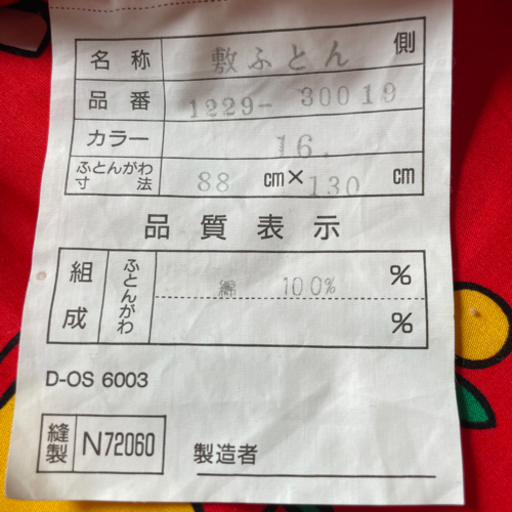 名称 敷ふとん 側
品番 1229-30019
カラー 16.
ふとんがわ寸法 88 cm×130 cm
品質表示
組成 ふとんがわ 綿 100% %
%
D-OS 6003
縫製 N72060 製造者